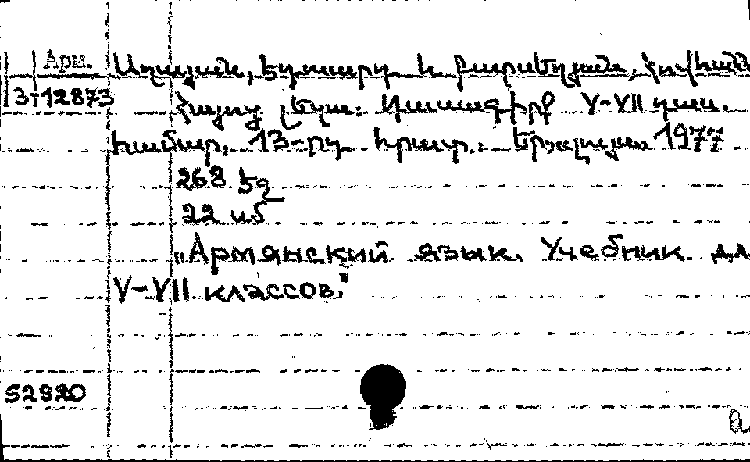 Арм. Աղայան, Էդուարդ և Բարսեղյան, Հովհանն
3-12873 Հայոց լեզու: Դասագիրք V-VII դաս.
համար. 13-րդ հրատ.: Երևան 1977
268 էջ
22
„Армянский язык. Учебник дл
V-VII классов."
52920